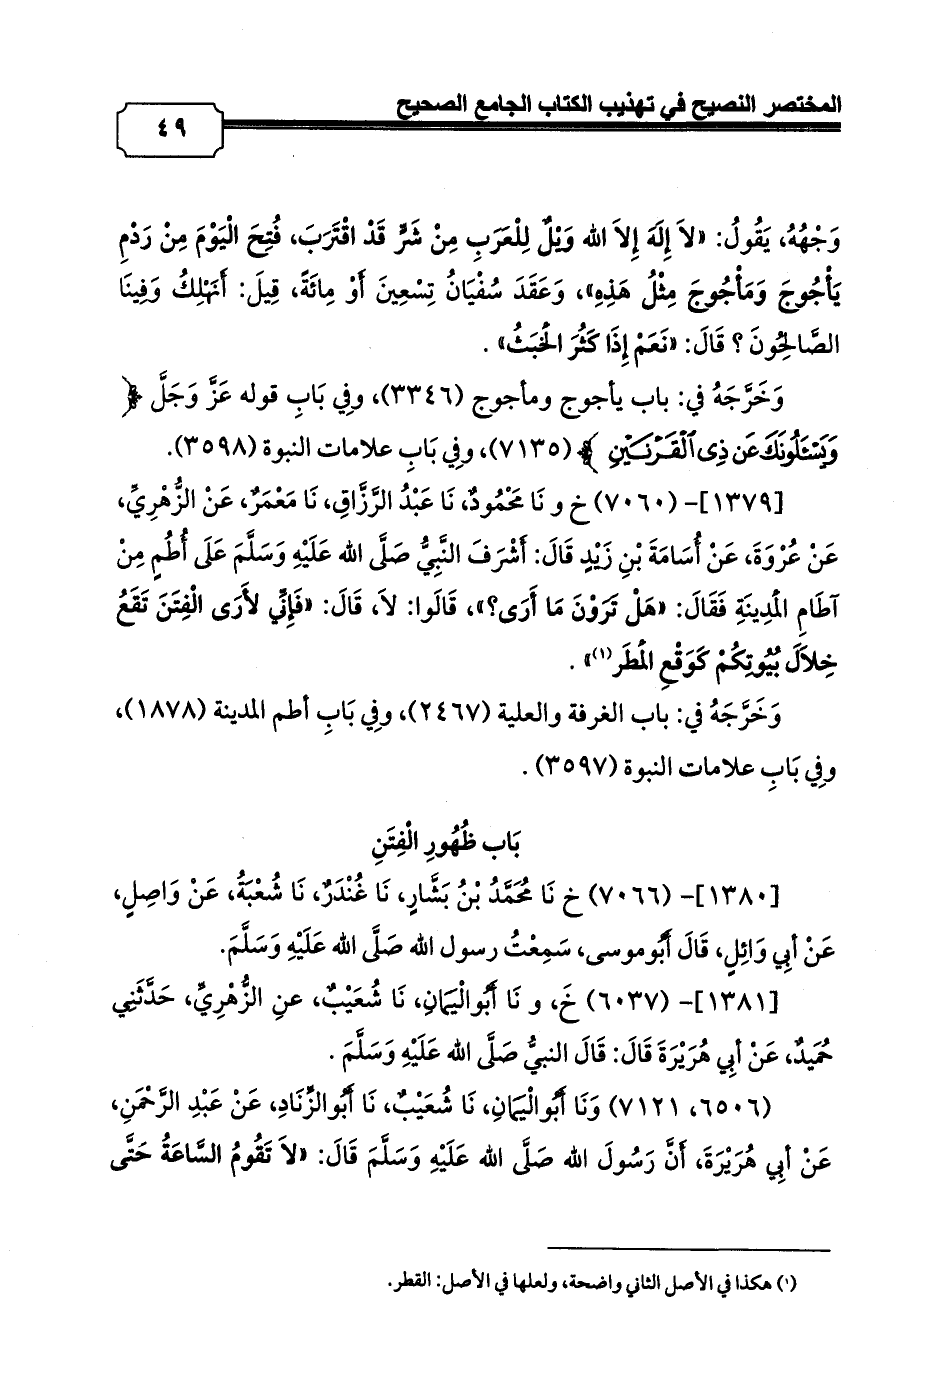 المختصر النصيح في تهذيب الكتاب الجامع الصحيح
٤٩
وَجْهُهُ، يَقُولُ: «لاَ إِلَهَ إِلاَ الله وَيْلٌ لِلْعَرَبِ مِنْ شَرٍّ قَدْ اقْتَرَبَ، فُتِحَ الْيَوْمَ مِنْ رَدْمِ
يَأْجُوجَ وَمَأْجُوجَ مِثْلُ هَذِهِ»، وَعَقَدَ سُفْيَانُ تِسْعِينَ أَوْ مِائَةً، قِيلَ: أَنَهْلِكُ وَفِينَا
الصَّالِحُونَ؟ قَالَ: «نَعَمْ إِذَا كَثُرَ الْخَبَثُ».
وَخَرَّجَهُ في: باب يأجوج ومأجوج (٣٣٤٦)، وفِي بَابِ قوله عَزَّ وَجَلَّ ﴿
وَيَسْـَٔلُونَكَ عَن ذِى ٱلْقَرْنَيْنِ ﴾ (٧١٣٥)، وفِي بَابِ علامات النبوة (٣٥٩٨).
[١٣٧٩]- (٧٠٦٠) خ و نَا مَحْمُودٌ، نَا عَبْدُ الرَّزَّاقِ، نَا مَعْمَرٌ، عَنْ الزُّهْرِيِّ،
عَنْ عُرْوَةَ، عَنْ أُسَامَةَ بْنِ زَيْدٍ قَالَ: أَشْرَفَ النَّبِيُّ صَلَّى الله عَلَيْهِ وَسَلَّمَ عَلَى أُطُمٍ مِنْ
آطَامِ الْمَدِينَةِ فَقَالَ: «هَلْ تَرَوْنَ مَا أَرَى؟»، قَالُوا: لاَ، قَالَ: «فَإِنِّي لأَرَى الْفِتَنَ تَقَعُ
خِلاَلَ بُيُوتِكُمْ كَوَقْعِ الْمَطَرِ(١)».
وَخَرَّجَهُ في: باب الغرفة والعلية (٢٤٦٧)، وفِي بَابِ أطم المدينة (١٨٧٨)،
وفِي بَابِ علامات النبوة (٣٥٩٧).
بَاب ظُهُورِ الْفِتَنِ
[١٣٨٠]- (٧٠٦٦) خ نَا مُحَمَّدُ بْنُ بَشَّارٍ، نَا غُنْدَرٌ، نَا شُعْبَةُ، عَنْ وَاصِلٍ،
عَنْ أبِي وَائِلٍ، قَالَ أَبُوموسى، سَمِعْتُ رسول الله صَلَّى الله عَلَيْهِ وَسَلَّمَ.
[١٣٨١]- (٦٠٣٧) خَ، و نَا أَبُوالْيَمَانِ، نَا شُعَيْبٌ، عنِ الزُّهْرِيِّ، حَدَّثَنِي
حُمَيدٌ، عَنْ أبِي هُرَيْرَةَ قَالَ: قَالَ النبيُّ صَلَّى الله عَلَيْهِ وَسَلَّمَ.
(٦٥٠٦، ٧١٢١) وَنَا أَبُوالْيَمَانِ، نَا شُعَيْبٌ، نَا أَبُوالزِّنَادِ، عَنْ عَبْدِ الرَّحْمَنِ،
عَنْ أبِي هُرَيْرَةَ، أَنَّ رَسُولَ الله صَلَّى الله عَلَيْهِ وَسَلَّمَ قَالَ: «لاَ تَقُومُ السَّاعَةُ حَتَّى
(١) هكذا في الأصل الثاني واضحة، ولعلها في الأصل: القطر.